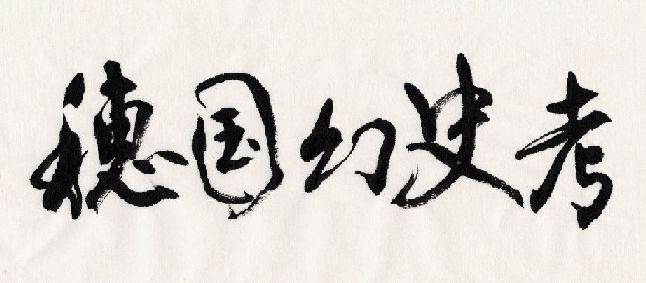 穂国幻史考